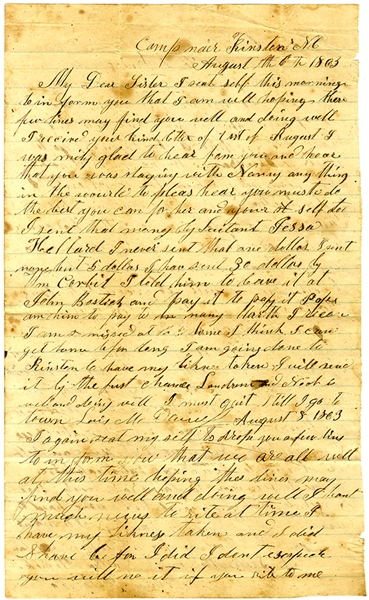 Camp near Kinston NC
August th 6th 1863
My Dear Sister I seat self this morning
to in form you that I am well hoping these
few lines may find you well and doing well
I receivd your kind letter of 1st of August I
was mity glad to hear fom you and hear
that you was staying with Nancy any thing
in the wourld to pleas hear you must do
the best you can for her and your self
I sent that money by
I never sent that one dollar I sent
none but 5 dollars I have sent 30 dollars by
Wm Corbit I told him to leave it at
John Bostick and pay it to
him to pay to
I think I can
get home be fore long I am going done to
Kinston to have my likness taken I will send
it by the first chance Landron and
well and doing well I must quit till I go to
town August 8 1863
I again seat my self to drop you a few lines
to in form you that we are all well
at this time hoping thes lines may
find you well and doing well I hant
much news to rite at time I
have my likness taken and I did
I have be for I did I dont expect
you will no it if you rite to me